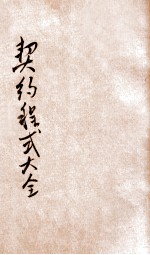 契约程式大全